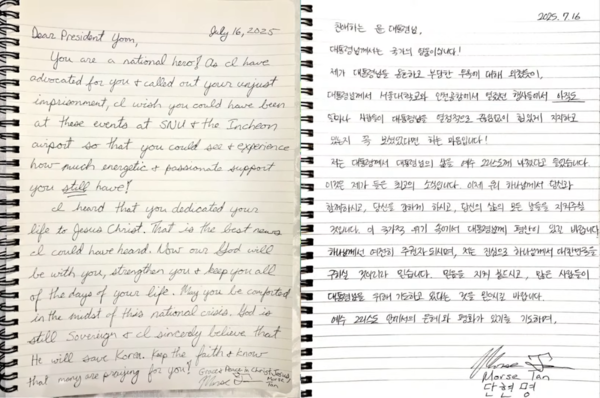 July 16, 2025
Dear President Yoon,
You are a national hero! As I have
advocated for you & called out your unjust
imprisonment, I wish you could have been
at these events at SNU & the Incheon
airport so that you could see & experience
how much energetic & passionate support
you still have!
I heard that you dedicated your
life to Jesus Christ. That is the best news
I could have heard. Now our God will
be with you, strengthen you & keep you all
of the days of your life. May you be comforted
in the midst of this national crisis. God is
still Sovereign & I sincerely believe that
He will save Korea. Keep the faith & know
that many are praying for you!
Grace & Peace in Christ Jesus,
Morse Tan
2025. 7. 16
존경하는 윤 대통령님,
대통령님께서는 국가의 영웅이십니다!
제가 대통령님을 옹호하고 부당한 투옥에 대해 외쳤듯이,
대통령님께서 서울대학교와 인천공항에서 열렸던 행사들에서 아직도
얼마나 사람들이 대통령님을 열정적으로 힘있게 지지하고
있는지 꼭 보셨었다면 하는 마음입니다!
저는 대통령께서 대통령님의 삶을 예수 그리스도께 바쳤다고 들었습니다.
이것은 제가 들은 최고의 소식입니다. 이제 우리 하나님께서 당신과
함께하시고, 당신을 강하게 하시고, 당신의 삶의 모든 날들을 지켜주실
것입니다. 이 국가적 위기 속에서 대통령님께 평안이 있길 바랍니다.
하나님께선 여전히 주권자되시며, 저는 진심으로 하나님께서 대한민국을
구하실 것이라 믿습니다. 믿음을 지켜 주시고, 많은 사람들이
대통령님을 위해 기도하고 있다는 것을 아시길 바랍니다.
예수 그리스도 안에서의 은혜와 평화가 있기를 기도하며,
Morse Tan
단현명